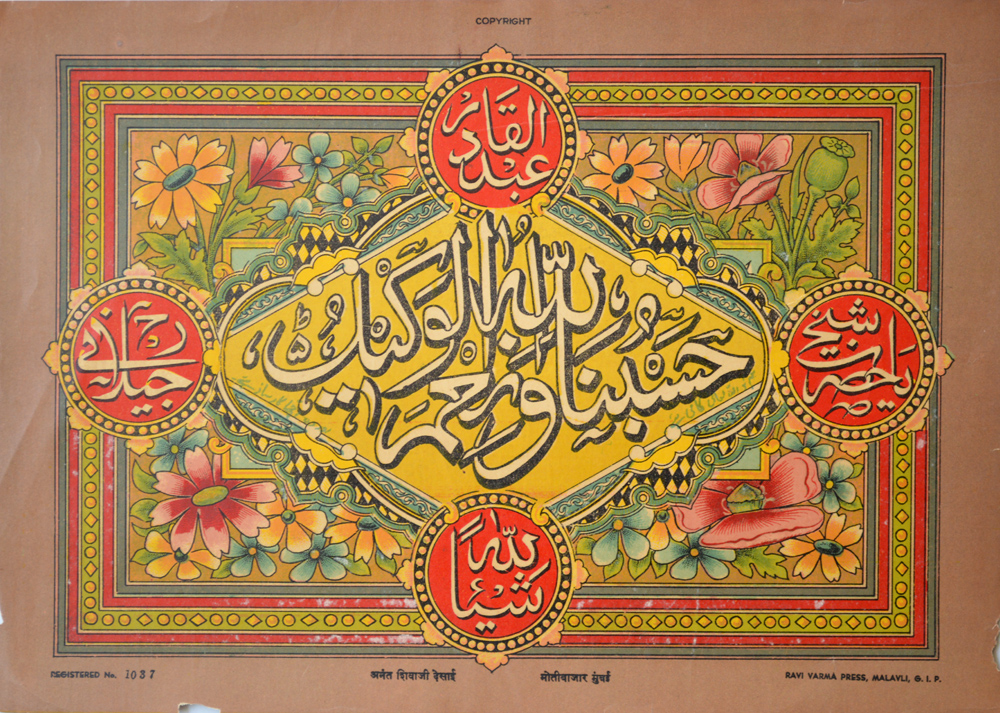 COPYRIGHT
عبد القادر
يا حضرت شيخ
حسبنا الله ونعم الوكيل
جيلاني
شيئا لله
REGISTERED No. 1037
अनंत शिवाजी देसाई
मोतीबाजार मुंबई
RAVI VARMA PRESS, MALAVLI, G. I. P.